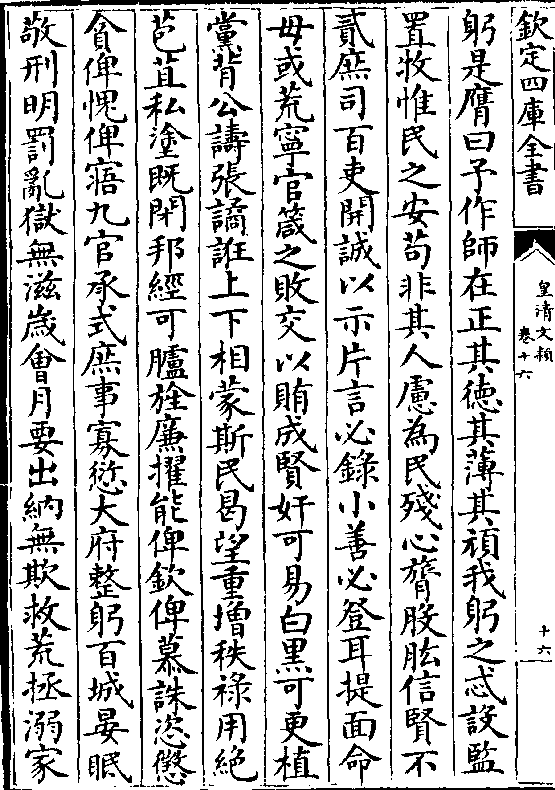 欽定四庫全書
皇清文穎
卷十六
十六
躬是膺曰予作師在正其徳其薄其頑我躬之忒設監
置牧惟民之安苟非其人慮為民殘心膂股肱信賢不
貳庶司百吏開誠以示片言必錄小善必登耳提面命
毋或荒寧官箴之敗交以賄成賢奸可易白黒可更植
黨背公譸張譎誑上下相蒙斯民曷望重增秩祿用絶
苞苴私塗既閉邦經可臚旌廉擢能俾欽俾慕誅恣懲
貪俾愧俾寤九官承式庶事寡愆大府整躬百城晏眠
敬刑明罰亂獄無滋歳會月要出納無欺救荒拯溺家